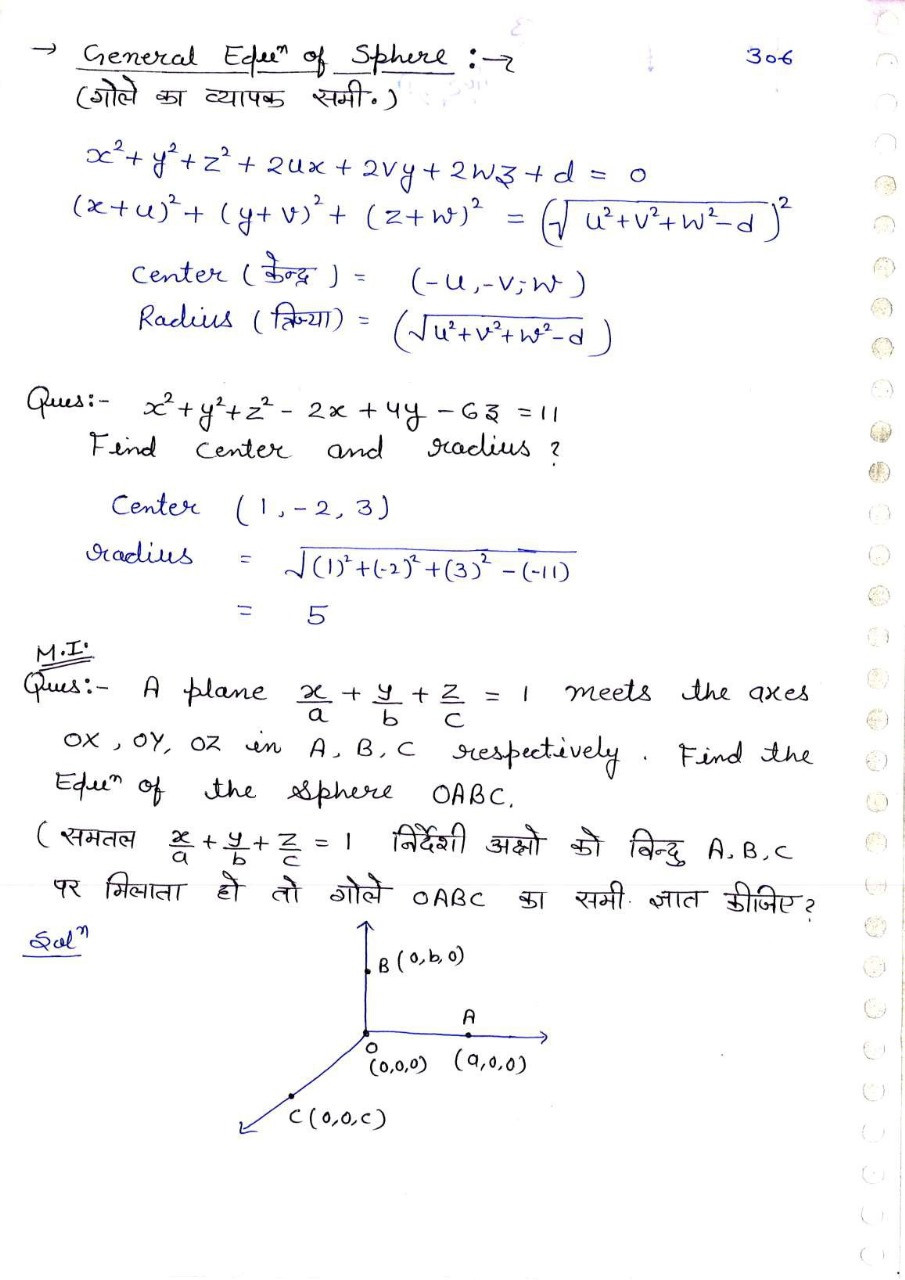 → General Equⁿ of Sphere :→
306
(गोले का व्यापक समी.)
x² + y² + z² + 2ux + 2vy + 2wz + d = 0
(x+u)² + (y+v)² + (z+w)² = (√u²+v²+w²-d)²
Center (केन्द्र) = (-u,-v,-w)
Radius (त्रिज्या) = (√u²+v²+w²-d)
Ques:- x²+y²+z² - 2x + 4y - 6z = 11
Find center and radius ?
Center (1,-2, 3)
radius = √(1)²+(-2)²+(3)² - (-11)
= 5
M.I.
Ques:- A plane x/a + y/b + z/c = 1 meets the axes
OX, OY, OZ in A, B, C respectively. Find the
Equⁿ of the sphere OABC.
(समतल x/a + y/b + z/c = 1 निर्देशी अक्षो को बिन्दु A, B, C
पर मिलाता हो तो गोले OABC का समी. ज्ञात कीजिए?
Solⁿ
B(0,b,0)
A
O
(0,0,0) (a,0,0)
C(0,0,c)